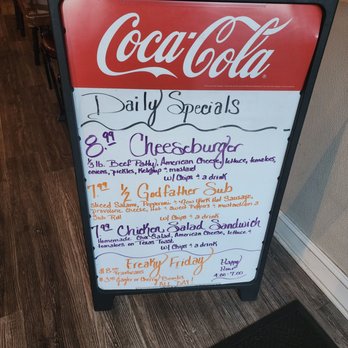 Coca-Cola
Daily Specials
8.99 Cheeseburger
1/3 lb. Beef Patty, American Cheese, lettuce, tomatoes,
onions, pickles, Ketchup & mustard
w/ Chips & a drink
7.99 1/2 Godfather Sub
Sliced Salami, Pepperoni & New York Hot Sausage,
Provolone Cheese, Hot & Sweet Peppers & mustard on a
Sub Roll
w/ Chips & a drink
7.99 Chicken Salad Sandwich
Homemade Chx Salad, American Cheese, lettuce &
tomatoes on Texas Toast
w/ Chips & a drink
Freaky Friday
Happy
Hour
4:00-7:00
ALL DAY!